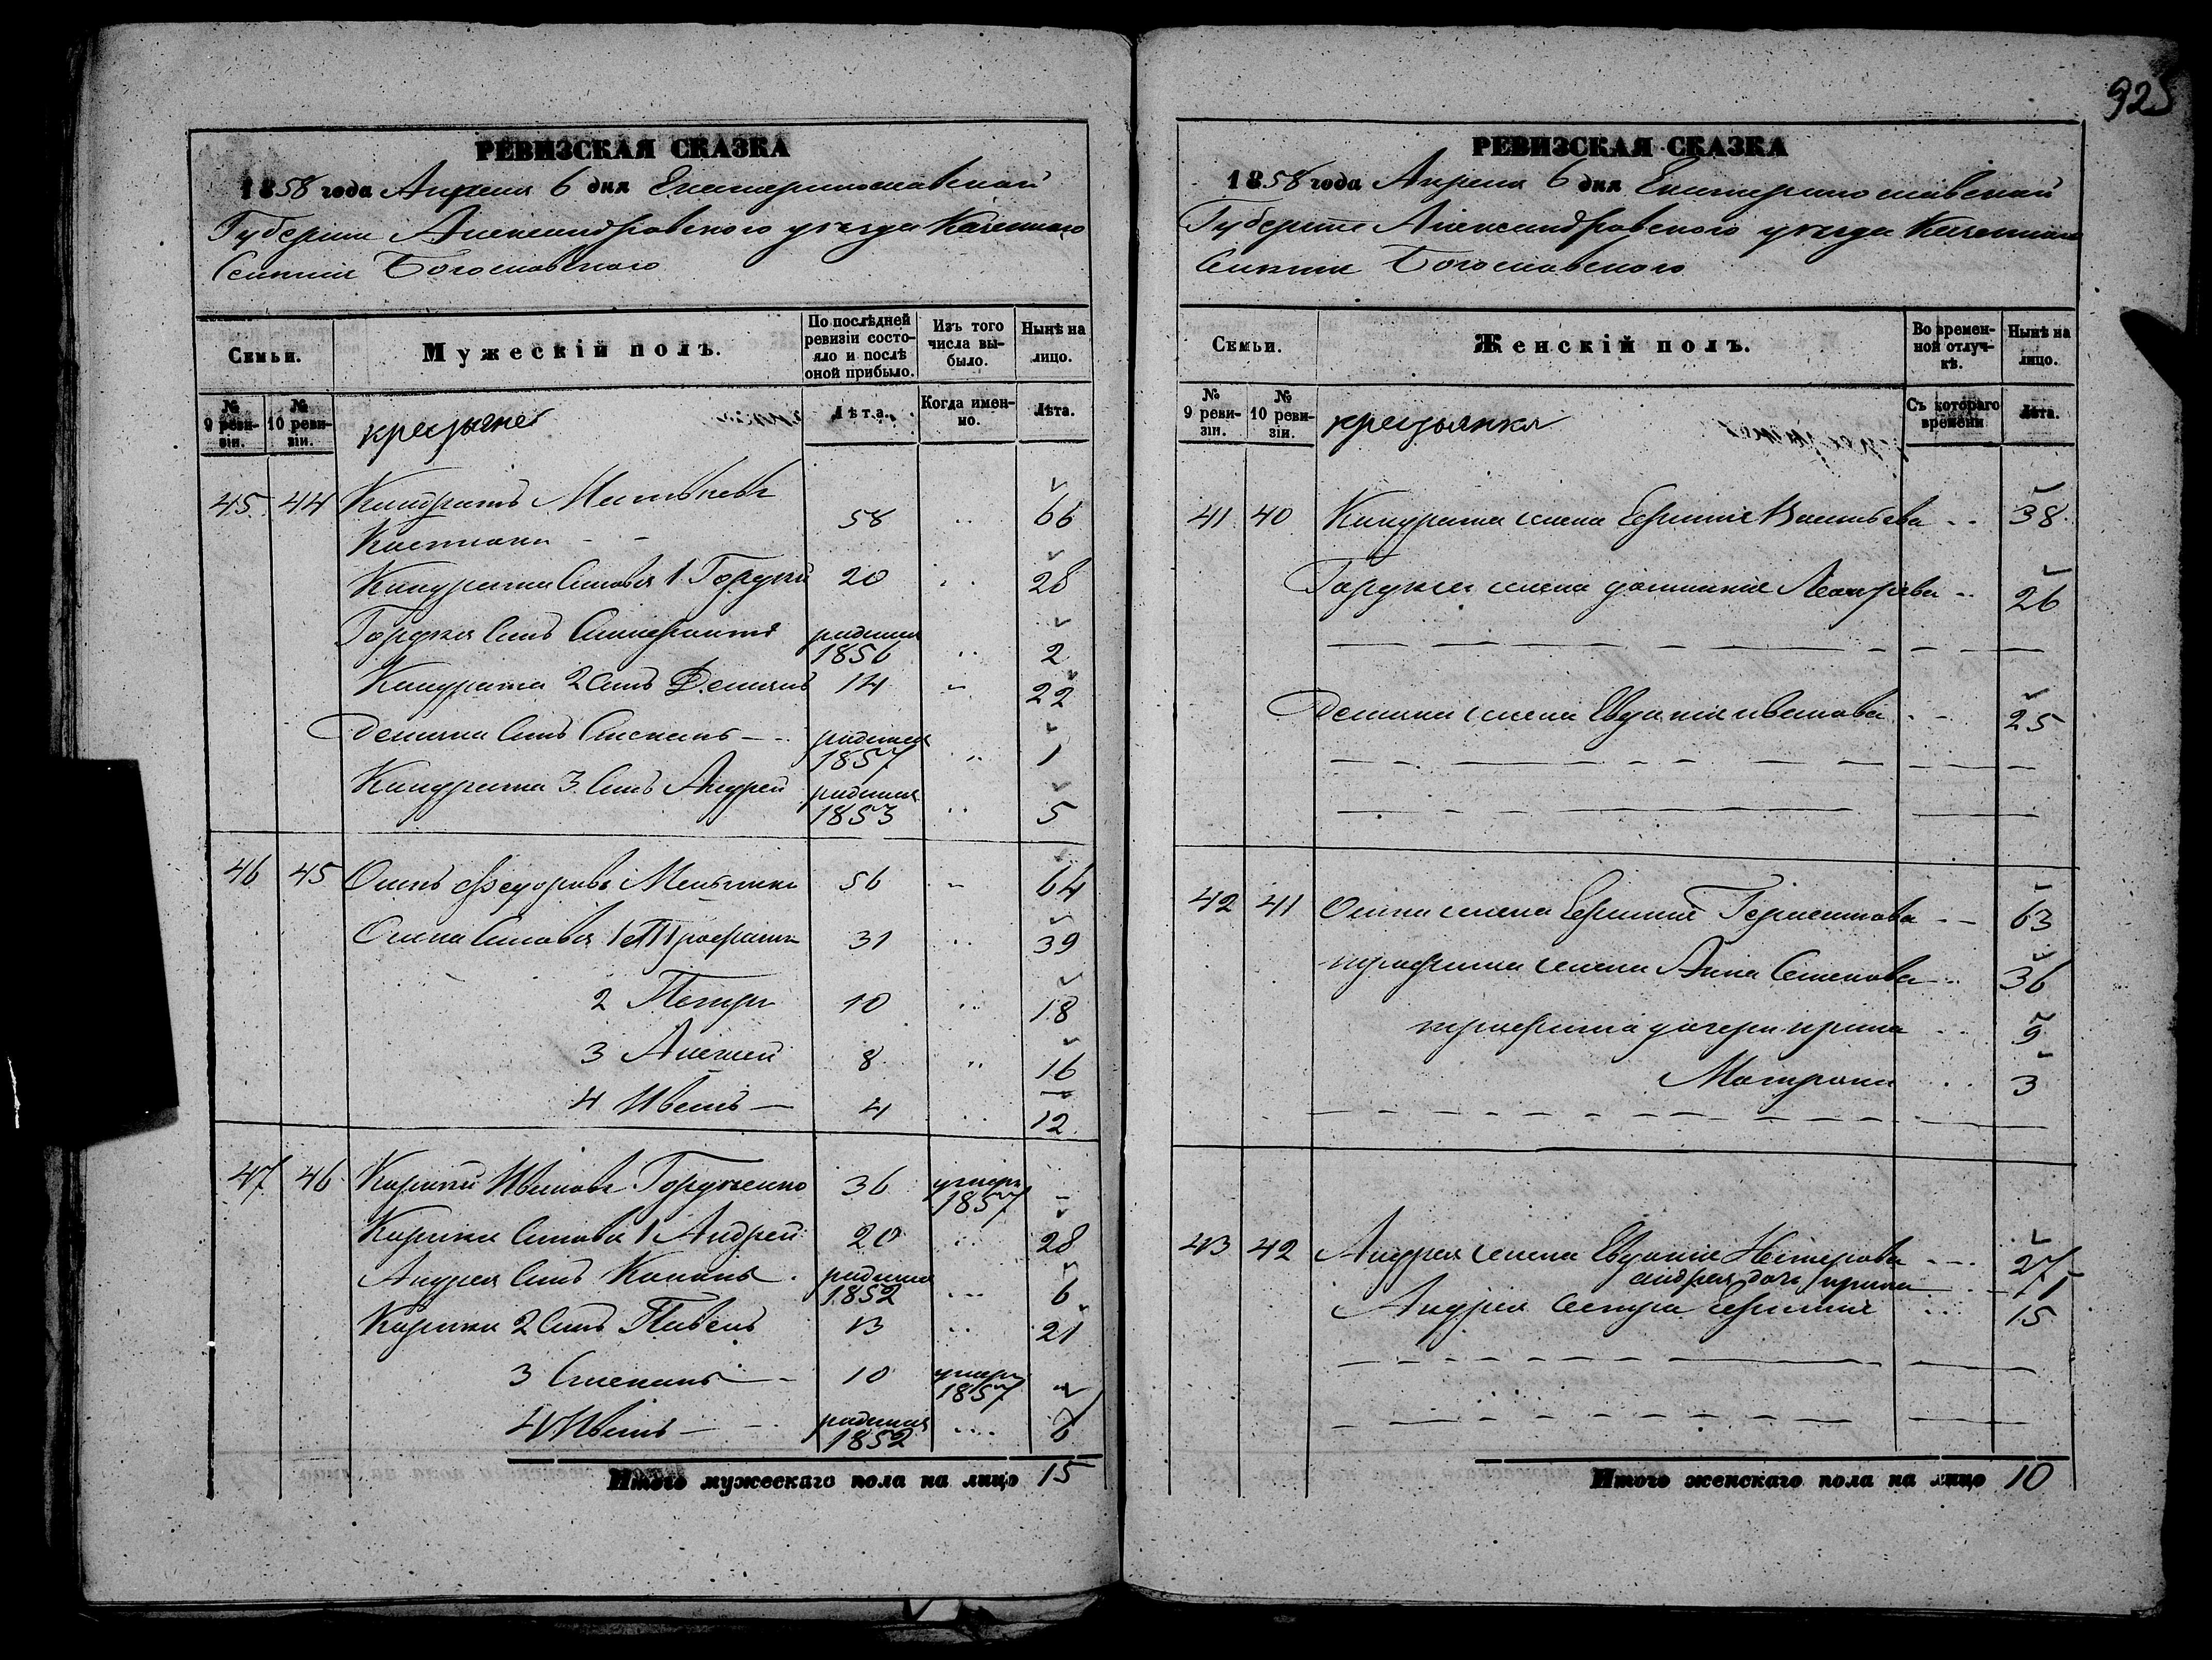 925
РЕВИЗСКАЯ СКАЗКА
1858 года Апреля 6 дня Екатеринославской
Губернии Александровского уезда Казенного
Селения Богославского
Семьи.
Мужескій полъ.
По послѣдней ревизіи состояло и послѣ оной прибыло.
Изъ того числа выбыло.
Нынѣ на лицо.
№ 9 ревизіи.
№ 10 ревизіи.
крестьяне
Лѣта.
Когда именно.
Лѣта.
45 44 Кондратъ Матвѣевъ
58 66
Кондрата Сыновья 1 Гордей 20 28
Гордея Сынъ родился
1856 2
Кондрата 2 Сынъ Демьянъ 14 22
Демьяна Сынъ Степанъ родился
1857 1
Кондрата 3 Сынъ Андрей родился
1853 5
46 45 Осипъ Федоровъ 56 64
Осипа Сыновья 1 Трофимъ 31 39
2 Петръ 10 18
3 Алексей 8 16
4 Иванъ 4 12
47 46 Ивановъ Гордиенко 36 умеръ
1857
Сыновья 1 Андрей 20 28
Андрея Сынъ родился
1852 6
2 Сынъ Павелъ 13 21
3 Степанъ 10 умеръ
1857
4 Иванъ родился
1852 6
Итого мужескаго пола на лицо 15
РЕВИЗСКАЯ СКАЗКА
1858 года Апреля 6 дня Екатеринославской
Губернии Александровского уезда Казенного
Селения Богославского
Семьи.
Женскій полъ.
Во временной отлучкѣ.
Нынѣ на лицо.
№ 9 ревизіи.
№ 10 ревизіи.
крестьянки
Съ котораго времени
Лѣта.
41 40 Кондрата жена Ефимия Васильева 38
Гордея жена 26
Демьяна жена Евдокия иванова 25
42 41 Осипа жена Ефимия 63
трофима жена Анна Семенова 36
трофима дочери ирина 9
Матрона 3
43 42 Андрея жена Евдокия Нестерова 27
андрея дочь ирина 1
Андрея Сестра Ефимия 15
Итого женскаго пола на лицо 10